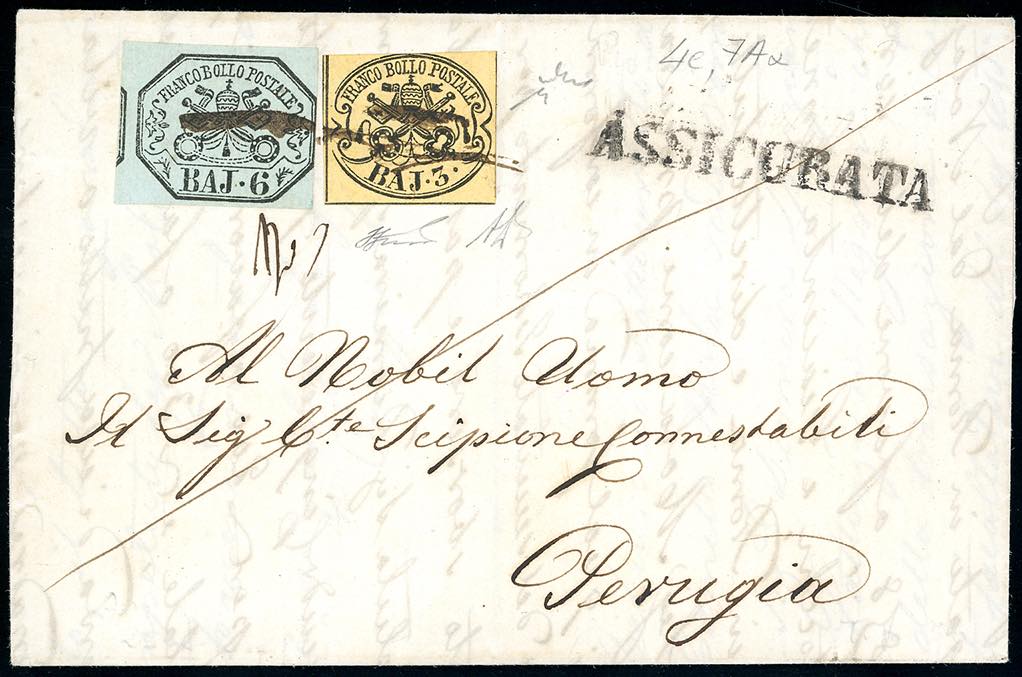 4e, 7Aα
FRANCO BOLLO POSTALE
BAJ·6
FRANCO BOLLO POSTALE
BAJ·3·
ASSICURATA
Al Nobil Uomo
Il Sig C.te Scipione Connestabili
Perugia